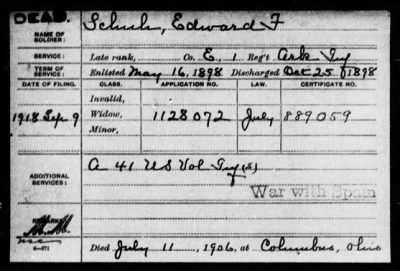 DEAD.
NAME OF SOLDIER: Schuh, Edward F
SERVICE: Late rank, Co. E, 1 Reg't Ark Inf
TERM OF SERVICE: Enlisted May 16, 1898 Discharged Oct 25, 1898
DATE OF FILING. CLASS. APPLICATION NO. LAW. CERTIFICATE NO.
Invalid,
1918 Sep 9 Widow, 1128072 July 889059
Minor,
ADDITIONAL SERVICES: A 41 US Vol Inf (S)
War with Spain
REMARKS:
6-871
Died July 11, 1906, at Columbus, Ohio